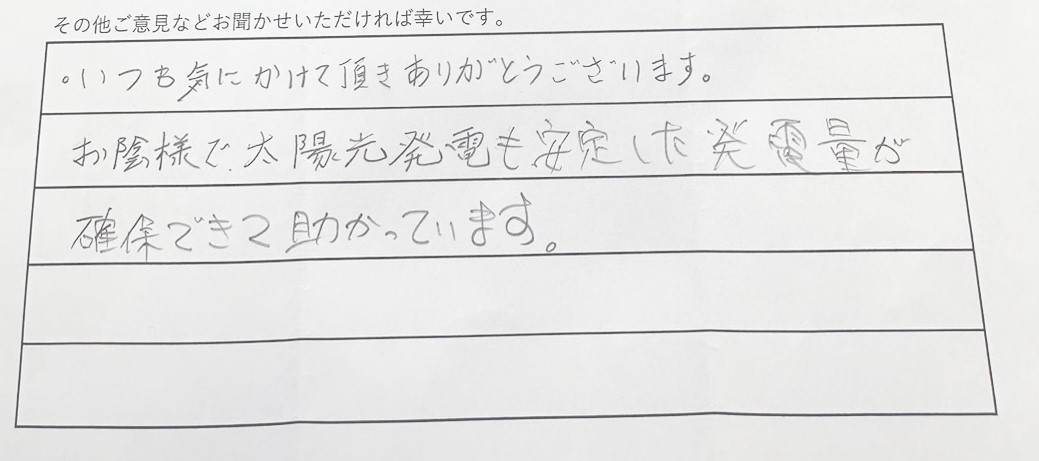 その他ご意見などお聞かせいただければ幸いです。
・いつも気にかけて頂きありがとうございます。
お陰様で、太陽光発電も安定した発電量が
確保できて助かっています。